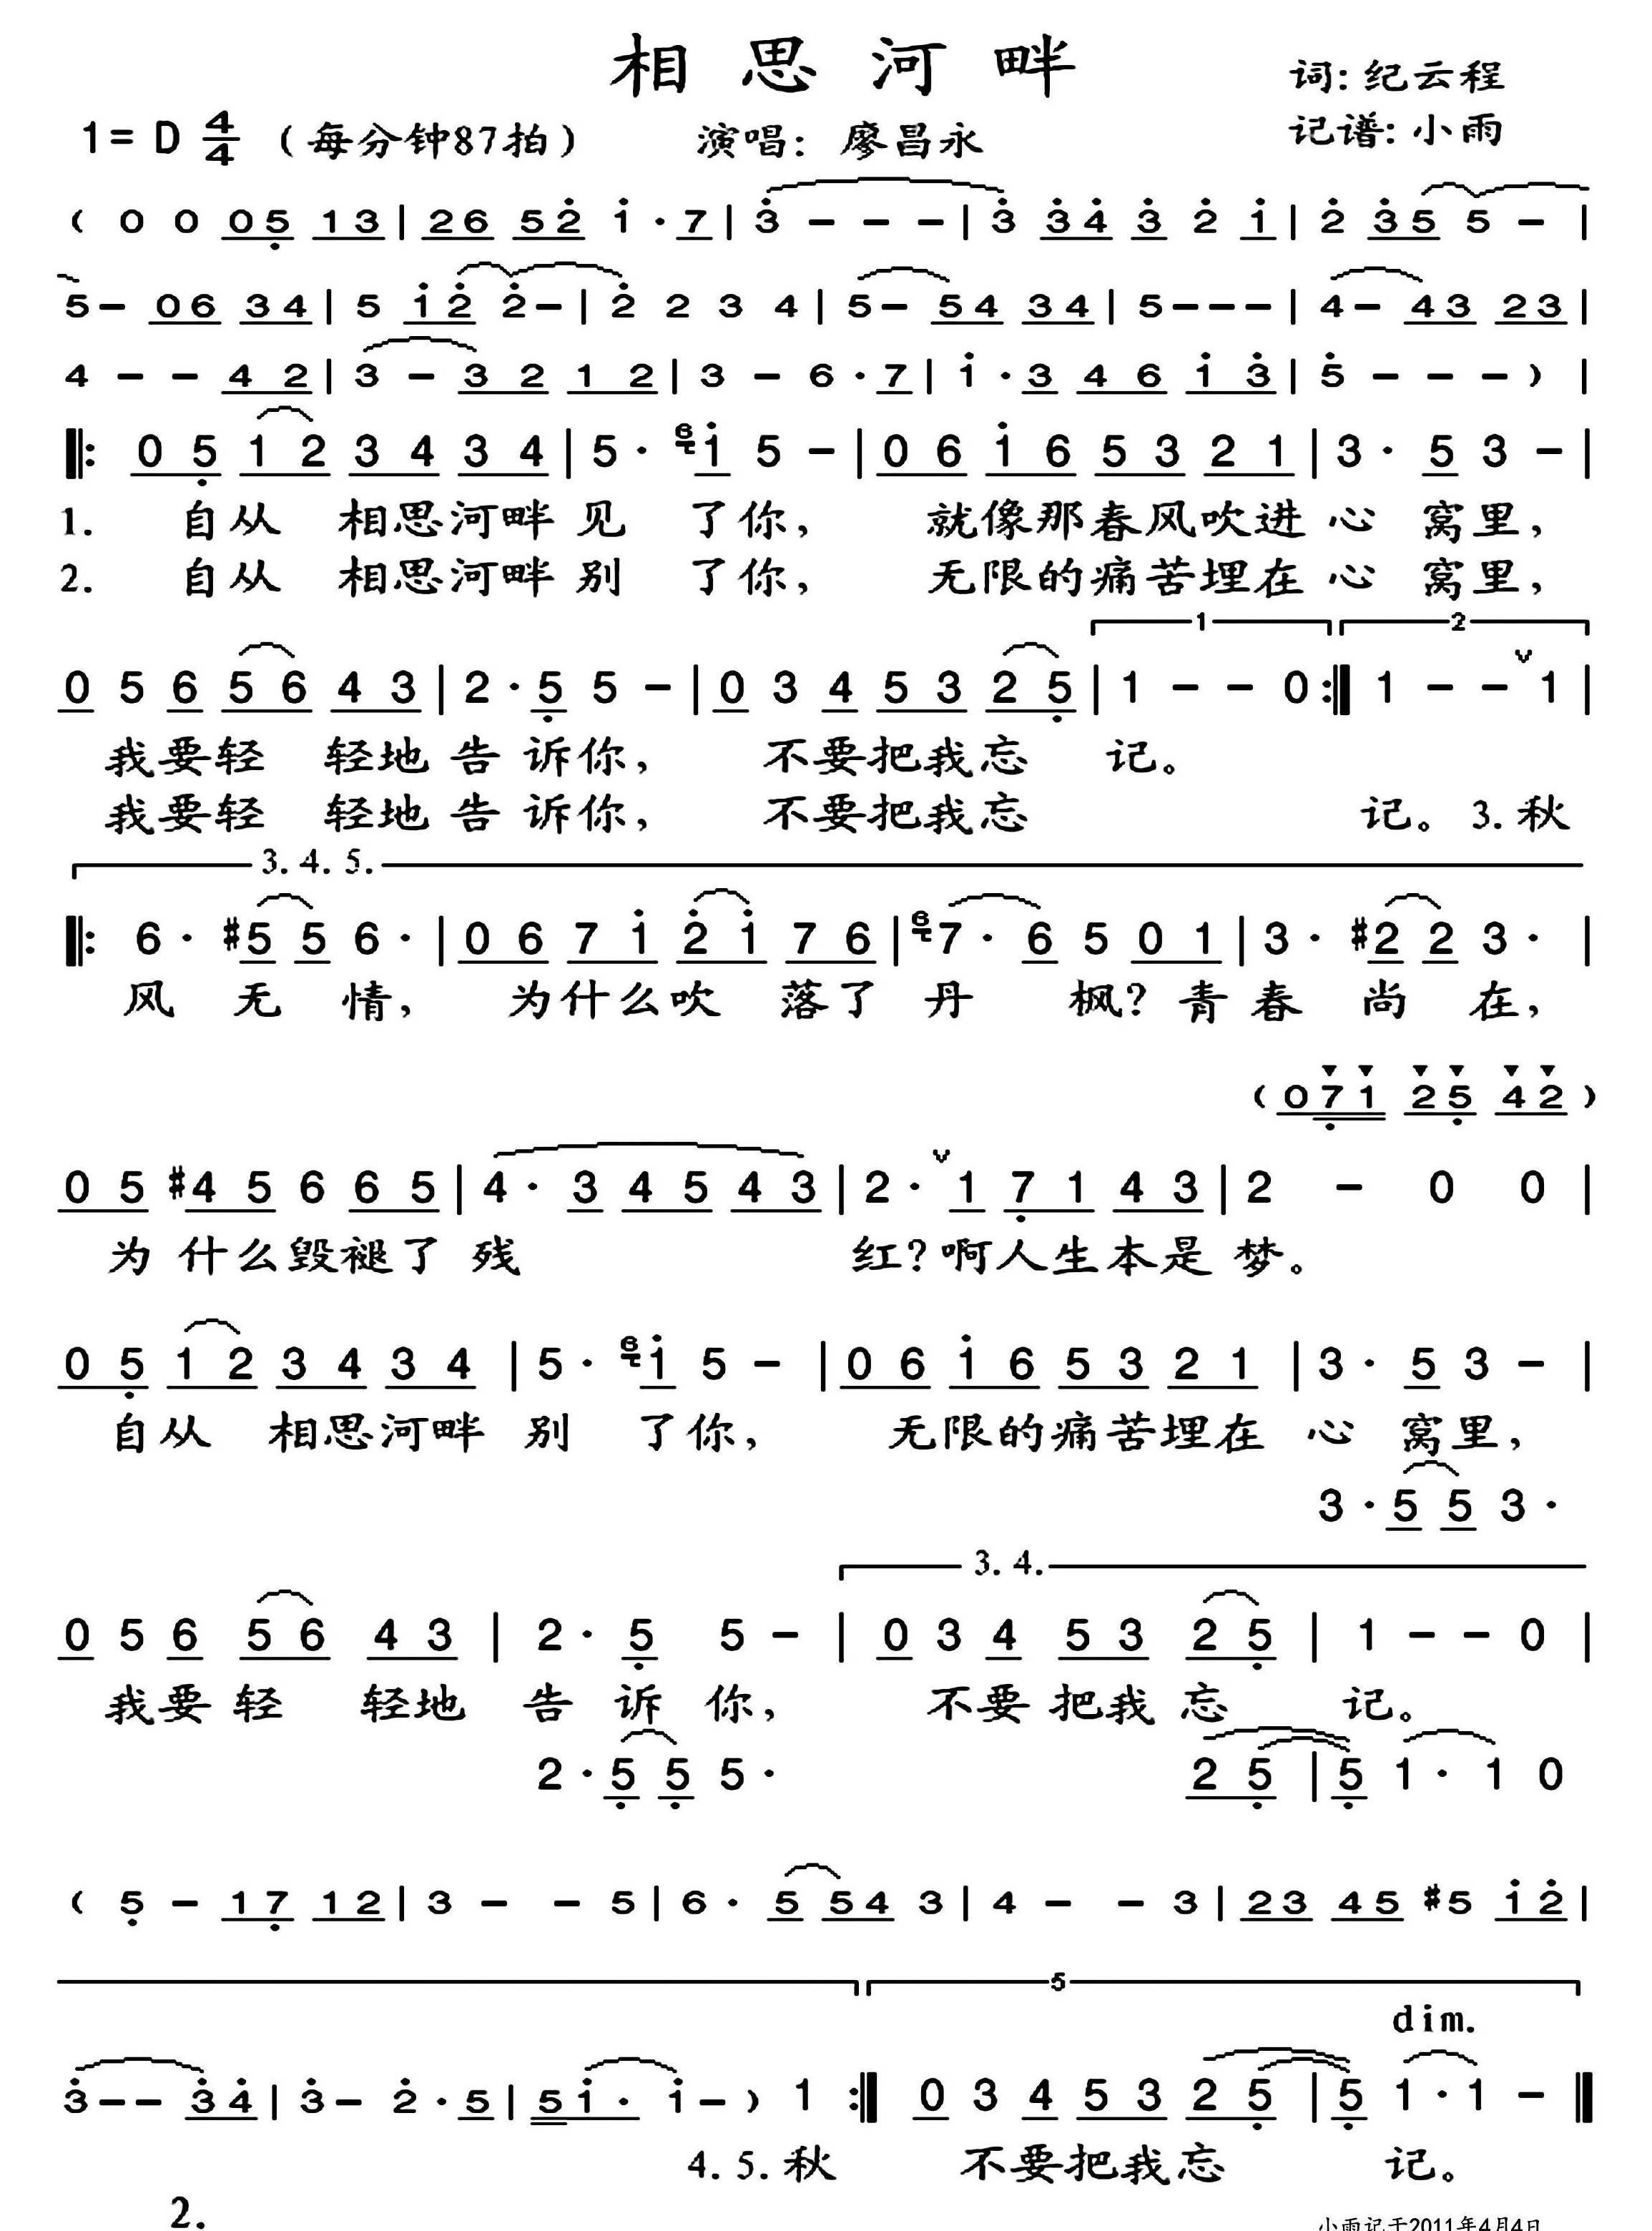 相思河畔
词: 纪云程
1= D 4/4 (每分钟87拍) 演唱: 廖昌永
记谱: 小雨
( 0 0 05 13 | 26 52 1 · 7 | 3 – – – | 3 34 3 2 1 | 2 35 5 – |
5 – 06 34 | 5 12 2 – | 2 2 3 4 | 5 – 54 34 | 5 – – – | 4 – 43 23 |
4 – – 42 | 3 – 32 12 | 3 – 6 · 7 | 1 · 3 46 13 | 5 – – – ) |
‖: 05 12 34 34 | 5 · 6 1 5 – | 06 16 53 21 | 3 · 5 3 – |
1. 自从 相思河畔 见 了你, 就像那春风吹进 心 窝里,
2. 自从 相思河畔 别 了你, 无限的痛苦埋在 心 窝里,
1 2
0 5 6 56 43 | 2 · 5 5 – | 0 3 4 53 25 | 1 – – 0 :‖ 1 – – v 1 |
我要轻 轻地 告 诉你, 不要把我忘 记。
我要轻 轻地 告 诉你, 不要把我忘 记。3. 秋
3. 4. 5.
‖: 6 · #5 5 6 · | 06 71 21 76 | 6 7 · 6 5 01 | 3 · #2 2 3 · |
风 无 情, 为什么吹 落了 丹 枫? 青 春 尚 在,
( 071 25 42 )
05 #45 6 65 | 4 · 3 45 43 | 2 · v 1 71 43 | 2 – 0 0 |
为 什么毁褪了 残 红? 啊人生本是 梦。
05 12 34 34 | 5 · 6 1 5 – | 06 16 53 21 | 3 · 5 3 – |
自从 相思河畔 别 了你, 无限的痛苦埋在 心 窝里,
3 · 5 5 3 ·
3. 4.
0 5 6 56 43 | 2 · 5 5 – | 0 3 4 53 25 | 1 – – 0 |
我要 轻 轻地 告 诉 你, 不要 把我 忘 记。
2 · 5 5 5 · 25 | 5 1 · 1 0
( 5 – 17 12 | 3 – – 5 | 6 · 5 54 3 | 4 – – 3 | 23 45 #5 12 |
5
dim.
3 – – 34 | 3 – 2 · 5 | 51 · 1 – ) 1 :‖ 0 3 4 53 25 | 5 1 · 1 – ‖
4. 5. 秋 不要把我忘 记。
2.
小雨记于2011年4月4日